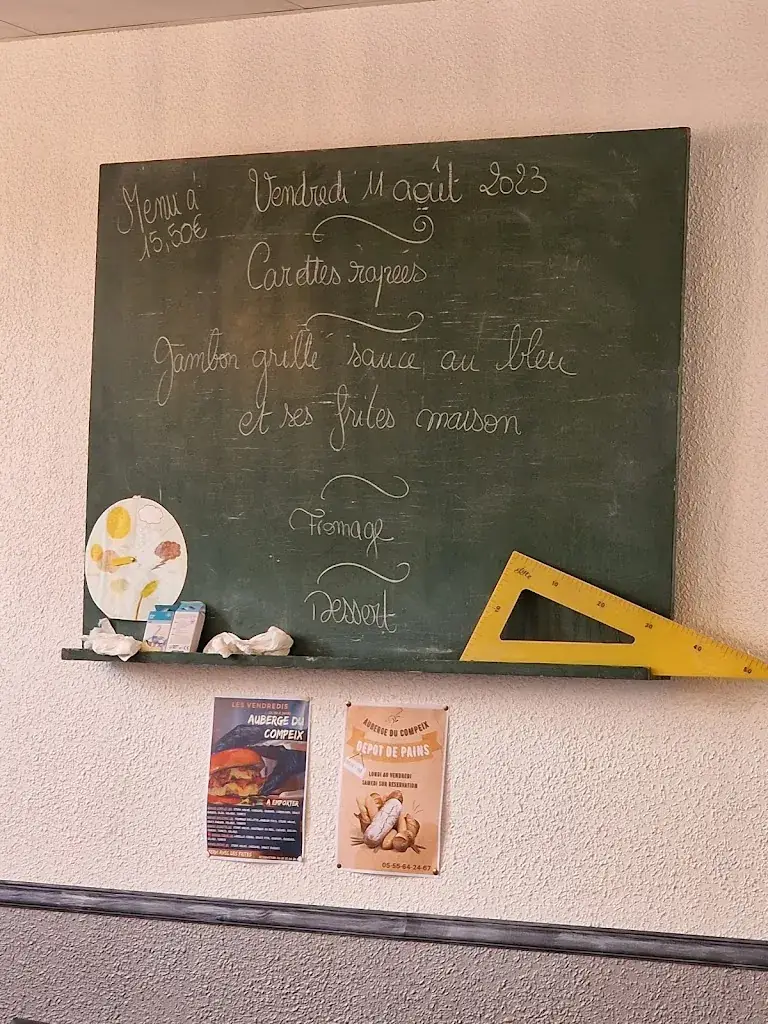 Menu à
15,50€
Vendredi 11 août 2023
Carottes rapées
Jambon grillé sauce au bleu
et ses frites maison
Fromage
Dessert
0 10 20 30 40 50
LES VENDREDIS
AUBERGE DU
COMPEIX
A EMPORTER
AUBERGE DU COMPEIX
DEPOT DE PAINS
LUNDI AU VENDREDI
SAMEDI SUR RESERVATION
05-55-64-24-67